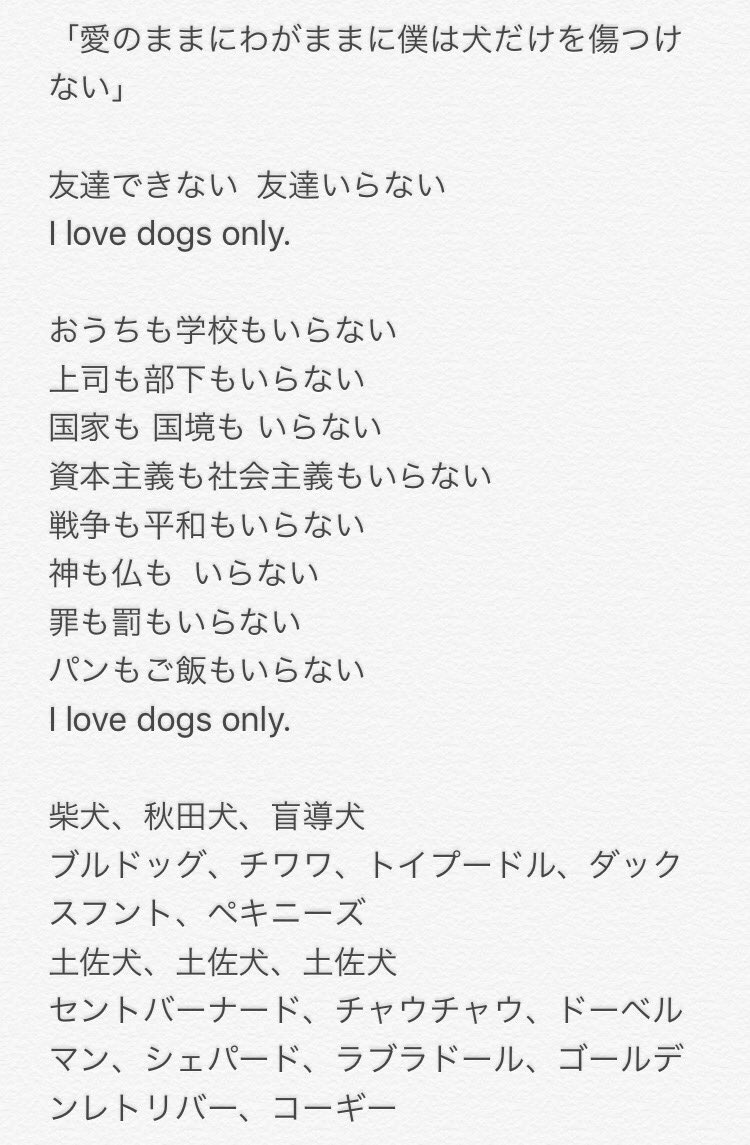 「愛のままにわがままに僕は犬だけを傷つけ
ない」
友達できない 友達いらない
I love dogs only.
おうちも学校もいらない
上司も部下もいらない
国家も 国境も いらない
資本主義も社会主義もいらない
戦争も平和もいらない
神も仏も いらない
罪も罰もいらない
パンもご飯もいらない
I love dogs only.
柴犬、秋田犬、盲導犬
ブルドッグ、チワワ、トイプードル、ダック
スフント、ペキニーズ
土佐犬、土佐犬、土佐犬
セントバーナード、チャウチャウ、ドーベル
マン、シェパード、ラブラドール、ゴールデ
ンレトリバー、コーギー